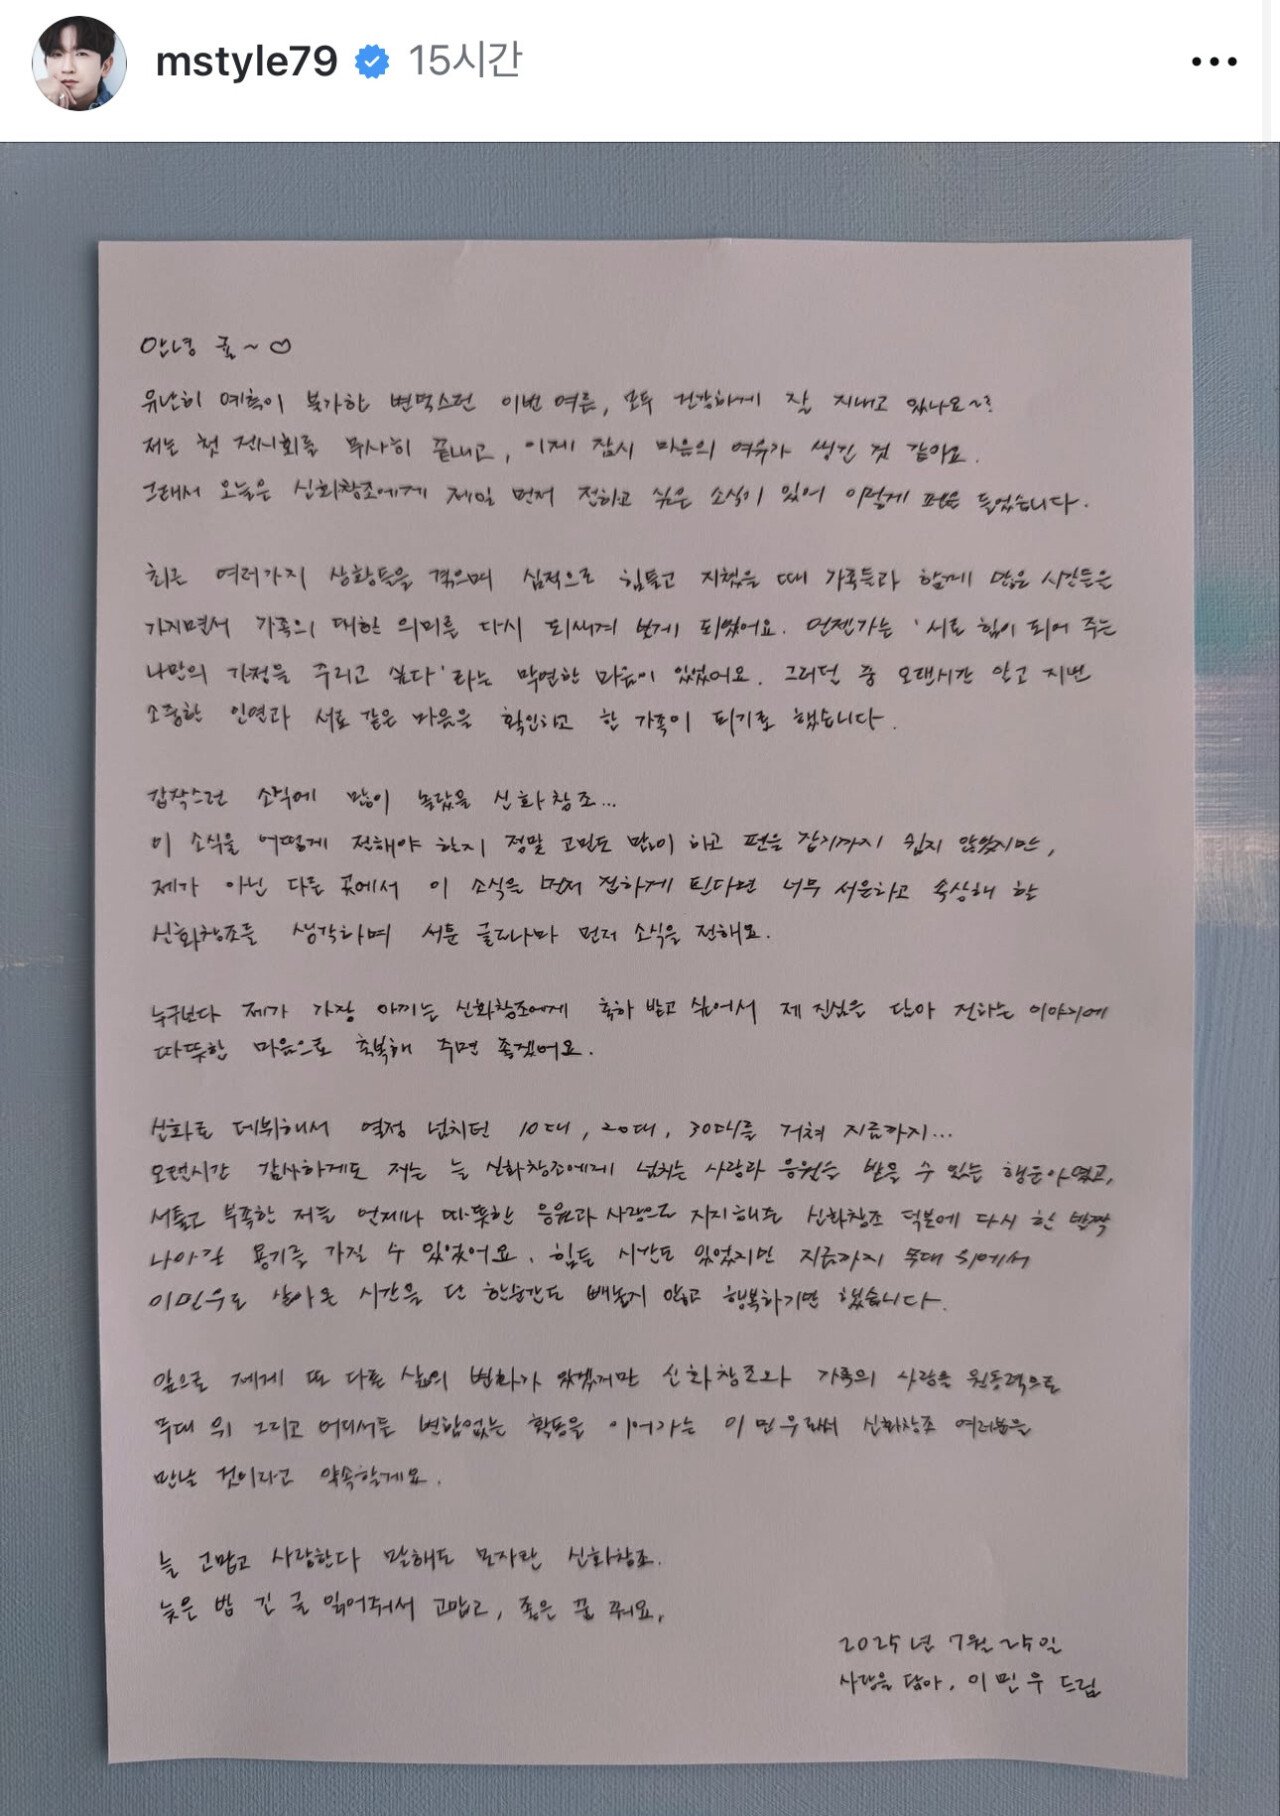 mstyle79 15시간
안녕 귤~♡
유난히 예측이 불가한 변덕스런 이번 여름, 모두 건강하게 잘 지내고 있나요~?
저는 첫 전시회를 무사히 끝내고, 이제 잠시 마음의 여유가 생긴 것 같아요.
그래서 오늘은 신화창조에게 제일 먼저 전하고 싶은 소식이 있어 이렇게 펜을 들었습니다.
최근 여러가지 상황들을 겪으며 심적으로 힘들고 지쳤을 때 가족들과 함께 많은 시간들을
가지면서 가족의 대한 의미를 다시 되새겨 보게 되었어요. 언젠가는 '서로 힘이 되어 주는
나만의 가정을 꾸리고 싶다'라는 막연한 마음이 있었어요. 그러던 중 오랜시간 알고 지낸
소중한 인연과 서로 같은 마음을 확인하고 한 가족이 되기로 했습니다.
갑작스런 소식에 많이 놀랐을 신화창조...
이 소식을 어떻게 전해야 할지 정말 고민도 많이 하고 펜을 잡기까지 쉽지 않았지만,
제가 아닌 다른 곳에서 이 소식을 먼저 접하게 된다면 너무 서운하고 속상해 할
신화창조를 생각하며 서툰 글이나마 먼저 소식을 전해요.
누구보다 제가 가장 아끼는 신화창조에게 축하 받고 싶어서 제 진심을 담아 전하는 이야기에
따뜻한 마음으로 축복해 주면 좋겠어요.
신화로 데뷔해서 열정 넘치던 10대, 20대, 30대를 거쳐 지금까지...
오랜시간 감사하게도 저는 늘 신화창조에게 넘치는 사랑과 응원을 받을 수 있는 행운아였고,
서툴고 부족한 저를 언제나 따뜻한 응원과 사랑으로 지지해준 신화창조 덕분에 다시 한 발짝
나아갈 용기를 가질 수 있었어요. 힘든 시간도 있었지만 지금까지 무대 위에서
이민우로 살아온 시간을 단 한순간도 빼놓지 않고 행복하기만 했습니다.
앞으로 제게 또 다른 삶의 변화가 있겠지만 신화창조와 가족의 사랑을 원동력으로
무대 위 그리고 어디서든 변함없는 활동을 이어가는 이민우로써 신화창조 여러분을
만날 것이라고 약속할게요.
늘 고맙고 사랑한다 말해도 모자란 신화창조.
늦은 밤 긴 글 읽어줘서 고맙고, 좋은 꿈 꿔요.
2025년 7월 25일
사랑을 담아, 이민우 드림